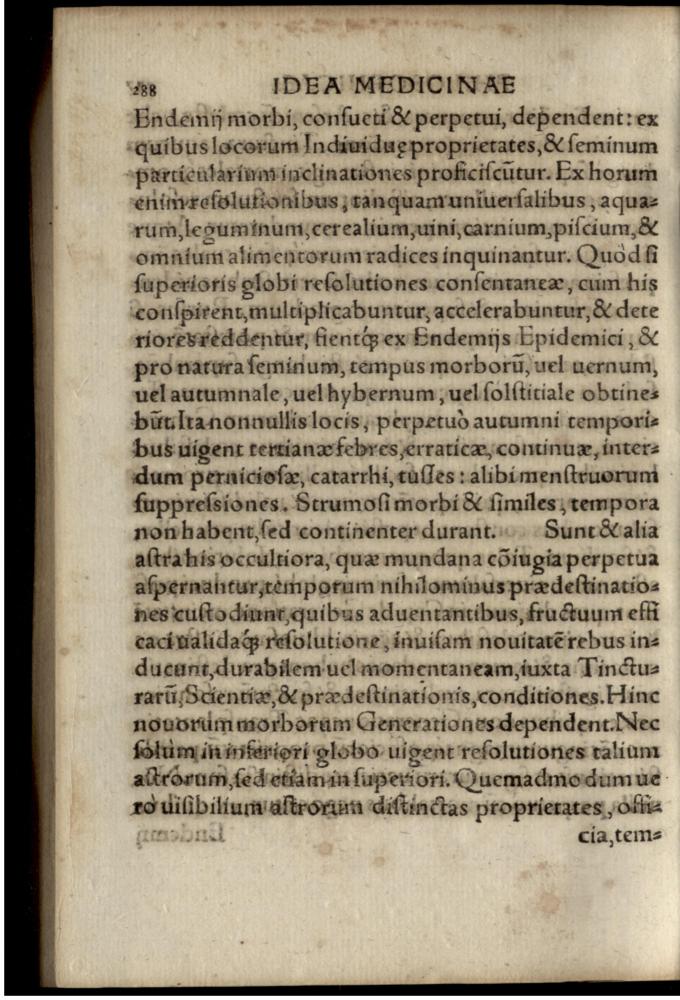 288 IDEA MEDICINAE
Endemij morbi, consueti & perpetui, dependent: ex
quibus locorum Indiuiduę proprietates, & seminum
particularium inclinationes proficiscūtur. Ex horum
enim resolutionibus, tanquam uniuersalibus, aqua⸗
rum, leguminum, cerealium, uini, carnium, piscium, &
omnium alimentorum radices inquinantur. Quòd si
superioris globi resolutiones consentaneæ, cum his
conspirent, multiplicabuntur, accelerabuntur, & dete
riores reddentur, fientq́ꝫ ex Endemijs Epidemici, &
pro natura seminum, tempus morborũ, uel uernum,
uel autumnale, uel hybernum, uel solstitiale obtine⸗
bũt. Ita nonnullis locis, perpetuò autumni tempori⸗
bus uigent tertianæ febres, erraticæ, continuæ, inter⸗
dum perniciosæ, catarrhi, tusses: alibi menstruorum
suppressiones. Strumosi morbi & similes, tempora
non habent, sed continenter durant. Sunt & alia
astra his occultiora, quæ mundana cōiugia perpetua
aspernantur, temporum nihilominus prædestinatio⸗
nes custodiunt, quibus aduentantibus, fructuum effi
caci ualidaq́ꝫ resolutione, inuisam nouitatē rebus in⸗
ducunt, durabilem uel momentaneam, iuxta Tinctu⸗
rarũ, Scientiæ, & prædestinationis, conditiones. Hinc
nouorum morborum Generationes dependent. Nec
solum in inferiori globo uigent resolutiones talium
astrorum, sed etiam in superiori. Quemadmodum ue
ro uisibilium astrorum distinctas proprietates, offi⸗
cia, tem⸗